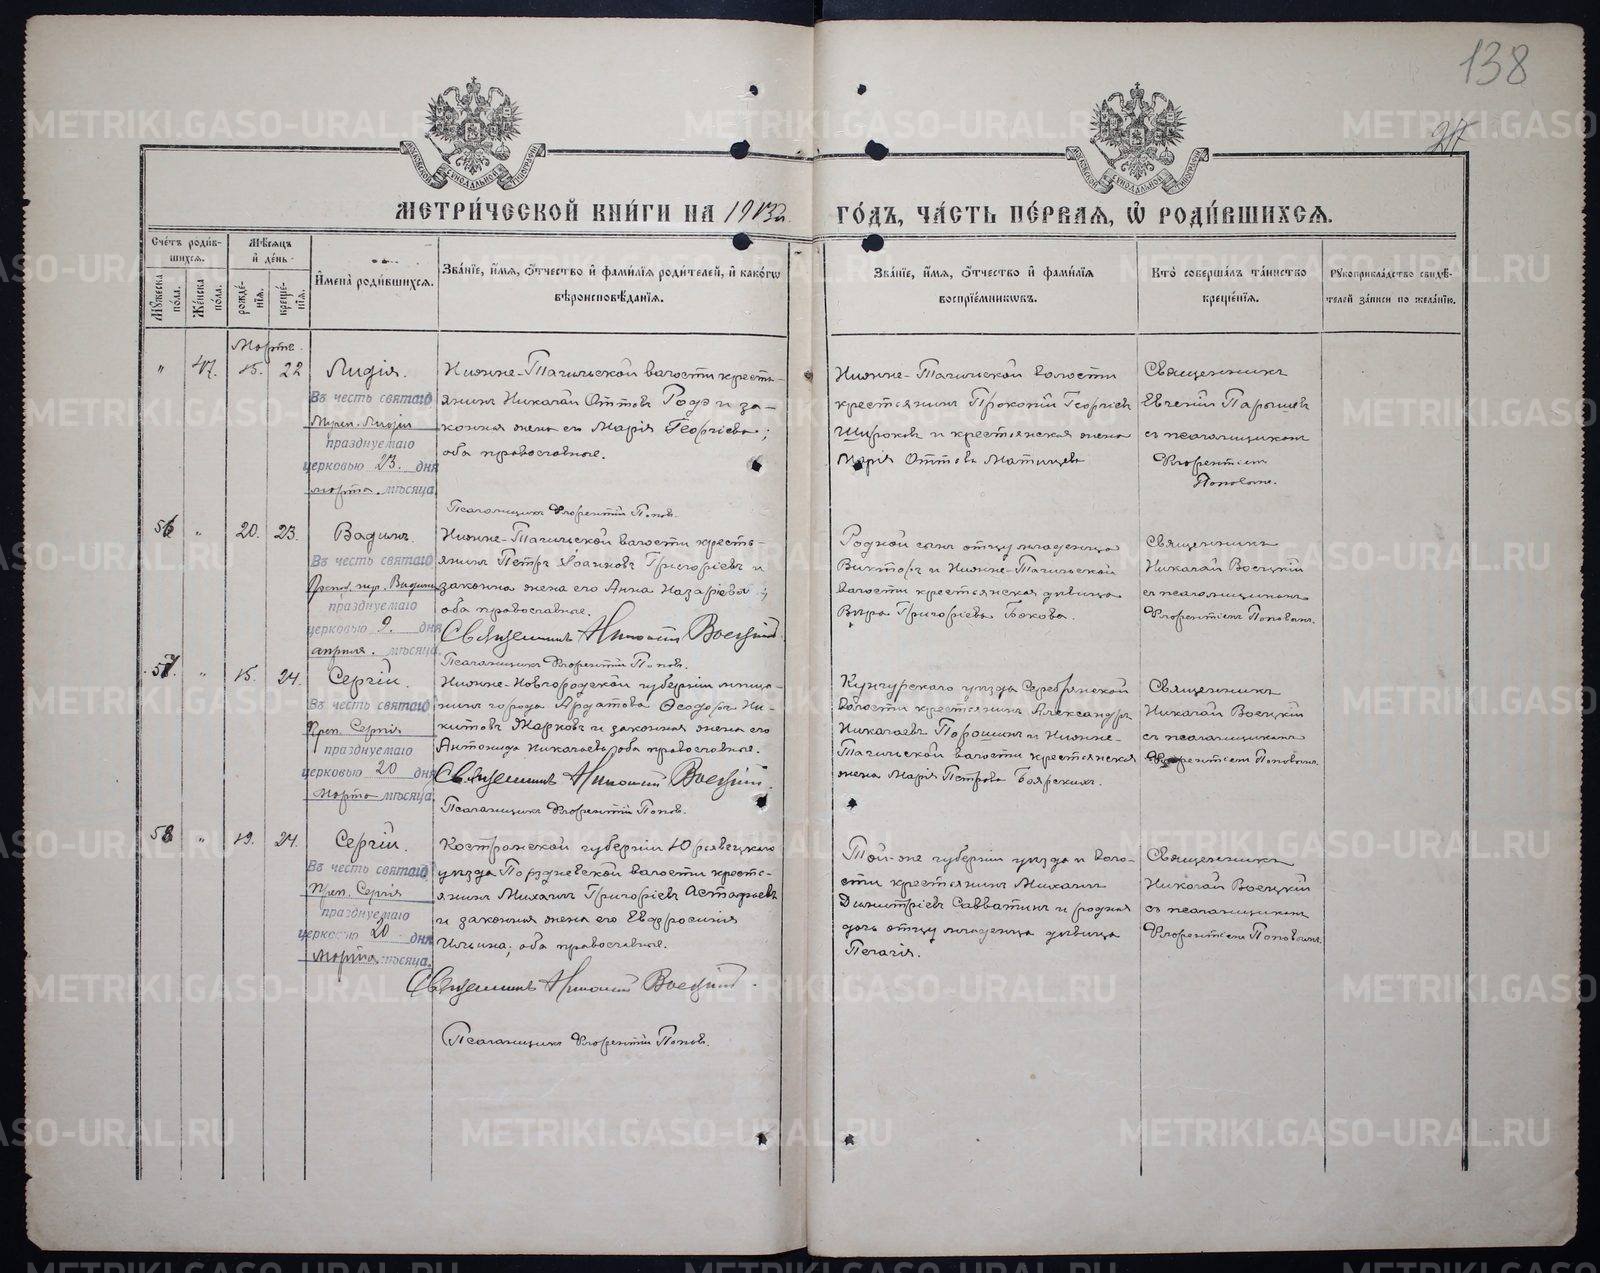 138
27
МЕТРИ́ЧЕСКОЙ КНИ́ГИ НА 1913 г.
ГО́ДЪ, ЧА́СТЬ ПЕ́РВАЯ, Ѡ҆ РОДИ́ВШИХСЯ.
Сче́тъ роди́в-
шихся.
Мꙋжеска по́ла.
Же́нска по́ла.
Мѣ́сяцъ
и҆ де́нь
рожде́-
нїя.
креще́-
нїя.
И҆мена̀ роди́вшихся.
Зва́нїе, и҆́мя, ѻ҆́тчество и҆ фами́лїя роди́телей, и҆ како́гѡ
вѣроисповѣ́данїя.
Зва́нїе, и҆́мя, ѻ҆́тчество и҆ фами́лїя
воспрїе́мникѡвъ.
Кто̀ соверша́лъ та́инство
креще́нїя.
Рꙋкоприкла́дство свидѣ́-
телей за́писи по жела́нїю.
Марта.
" 47. 15. 22
Лидія.
Въ честь святаго
Мучен. Лидіи
празднуемаго
церковью 23. дня
марта. мѣсяца.
Нижне-Тагильской волости кресть-
янинъ Николай Оттовъ Роде и за-
конная жена его Марія Георгіева;
оба православные.
Псаломщикъ Флорентій Поповъ.
Нижне-Тагильской волости
крестьянинъ Прокопій Георгіевъ
Широковъ и крестьянская жена
Марія Оттова
Священникъ
Евгеній
съ псаломщикомъ
Флорентіемъ
Поповымъ.
56 " 20. 23.
Вадимъ
Въ честь святаго
Препод. муч. Вадима
празднуемаго
церковью 9. дня
апрѣля. мѣсяца.
Нижне-Тагильской волости кресть-
янинъ Петръ Іоанновъ Григорьевъ и
законная жена его Анна Назаріева;
оба православные.
Священникъ Николай Воецкій
Псаломщикъ Флорентій Поповъ.
Родной сынъ отцу младенца
Викторъ и Нижне-Тагильской
волости крестьянская дѣвица
Вѣра Григоріева Бокова.
Священникъ
Николай Воецкій
съ псаломщикомъ
Флорентіемъ Поповымъ.
57 " 15. 24.
Сергій.
Въ честь святаго
Преп. Сергія
празднуемаго
церковью 20 дня
Марта мѣсяца.
Нижне-Новгородской губерніи мѣща-
нинъ города Ардатова Ѳеодоръ Ни-
китовъ Жарковъ и законная жена его
Антонида Николаева, оба православные.
Священникъ Николай Воецкій.
Псаломщикъ Флорентій Поповъ.
Кунгурскаго уѣзда Серебрянской
волости крестьянинъ Александръ
Николаевъ Порошинъ и Нижне-
Тагильской волости крестьянская
жена Марія Петрова Боярскихъ.
Священникъ
Николай Воецкій
съ псаломщикомъ
Флорентіемъ Поповымъ.
58 " 19. 24.
Сергій.
Въ честь святаго
Преп. Сергія
празднуемаго
церковью 20 дня
Марта. мѣсяца.
Костромской губерніи Юрьевецкаго
уѣзда Порздневской волости кресть-
янинъ Михаилъ Григоріевъ Астафьевъ
и законная жена его Евфросинія
Ильина; оба православные.
Священникъ Николай Воецкій.
Псаломщикъ Флорентій Поповъ.
Той-же губерніи уѣзда и воло-
сти крестьянинъ Михаилъ
Димитріевъ Савватинъ и родная
дочь отцу младенца дѣвица
Пелагія.
Священникъ
Николай Воецкій
съ псаломщикомъ
Флорентіемъ Поповымъ.
METRIKI.GASO-URAL.RU